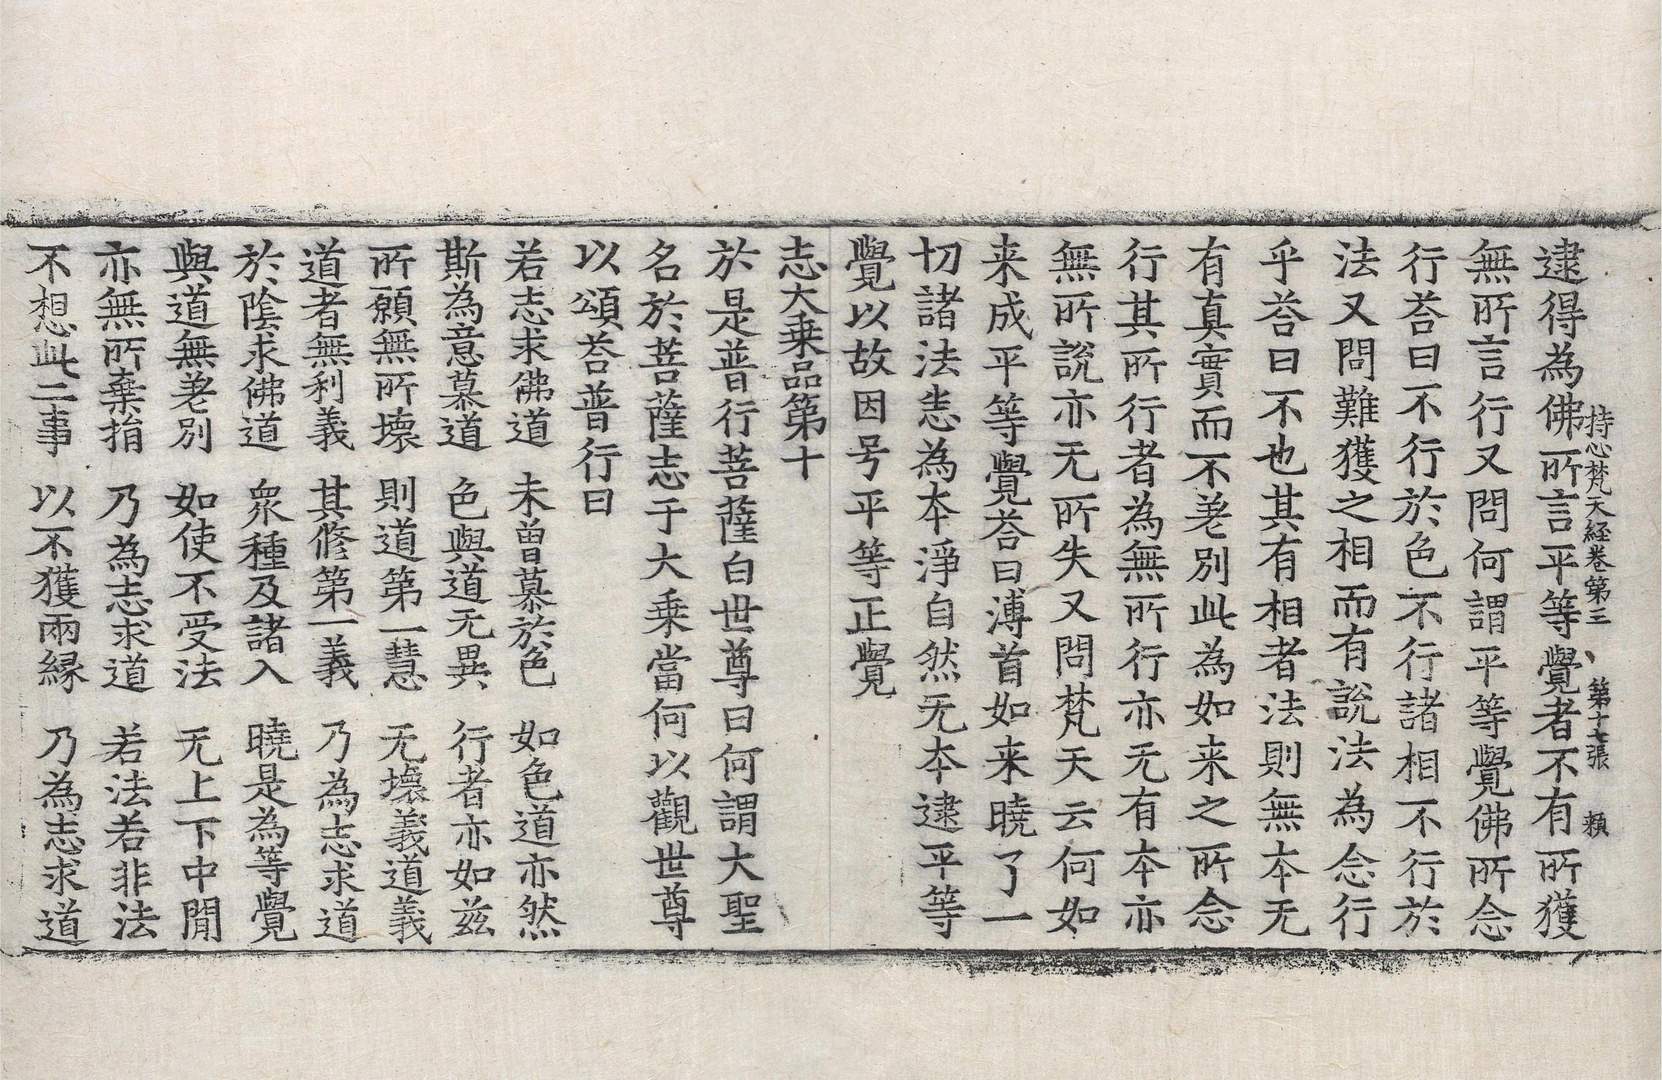 持心梵天経卷第三 第十七張 頛
逮得為佛所言平等覺者不有所獲
無所言行又問何謂平等覺佛所念
行荅曰不行於色不行諸相不行於
法又問難獲之相而有說法為念行
乎荅曰不也其有相者法則無本无
有真實而不差別此為如来之所念
行其所行者為無所行亦无有本亦
無所說亦无所失又問梵天云何如
来成平等覺荅曰溥首如来曉了一
切諸法悉為本淨自然无本逮平等
覺以故因号平等正覺
志大乗品第十
於是普行菩薩白世尊曰何謂大聖
名於菩薩志于大乗當何以觀世尊
以頌荅普行曰
若志求佛道 未曾慕於色 如色道亦然
斯為意慕道 色與道无異 行者亦如茲
所願無所壞 則道第一慧 无壞義道義
道者無利義 其修第一義 乃為志求道
於陰求佛道 衆種及諸入 曉是為等覺
與道無差別 如使不受法 无上下中閒
亦無所棄捐 乃為志求道 若法若非法
不想此二事 以不獲兩縁 乃為志求道